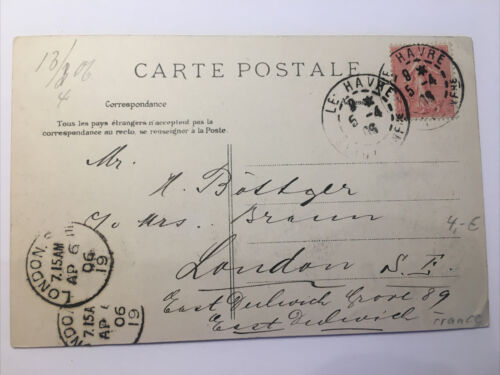 13/3 06
4
CARTE POSTALE
LE HAVRE
9 *
5 -4
06
LE HAVRE
9 *
5 -4
06
Correspondance
Tous les pays étrangers n'acceptent pas la
correspondance au recto, se renseigner à la Poste
Mr.
H. Böttger
c/o Mrs. Braun
4,- €
London S. E.
East Dulwich Grove 89
East Dulwich
France
LONDON.
7.15AM
AP 6
06
19
LONDON
7.15A
AP 6
06
19